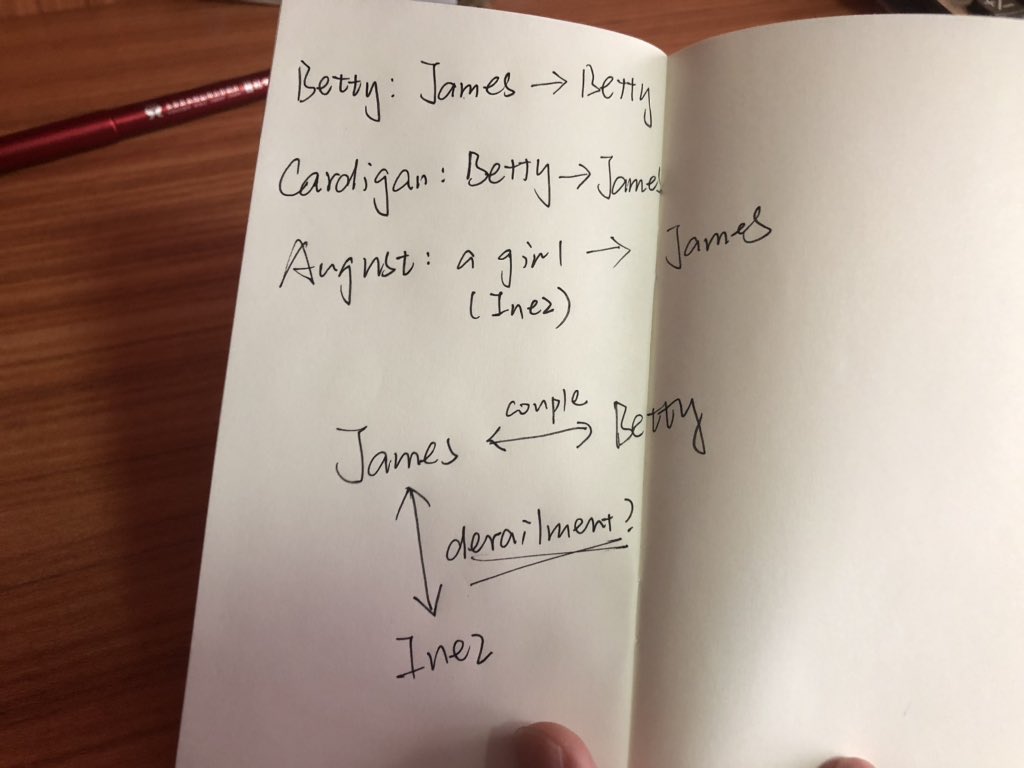 Betty: James → Betty
Cardigan: Betty → James
August: a girl → James
(Inez)
couple
James ↔ Betty
derailment?
Inez